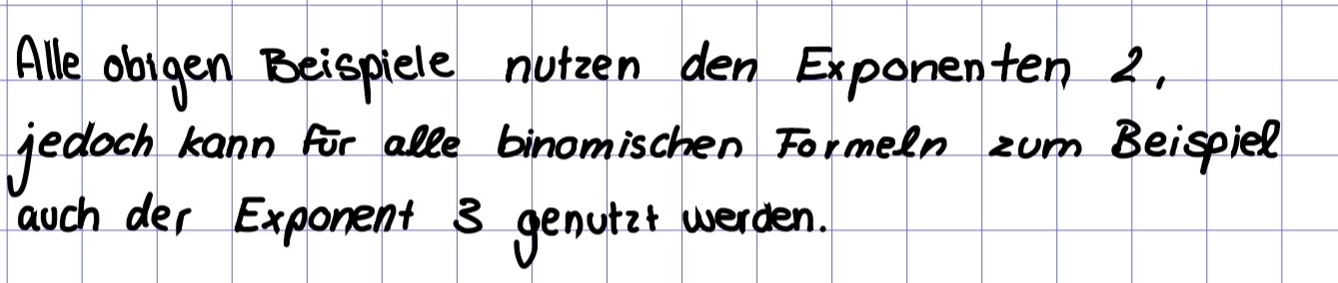 Alle obigen Beispiele nutzen den Exponenten 2,
jedoch kann für alle binomischen Formeln zum Beispiel
auch der Exponent 3 genutzt werden.